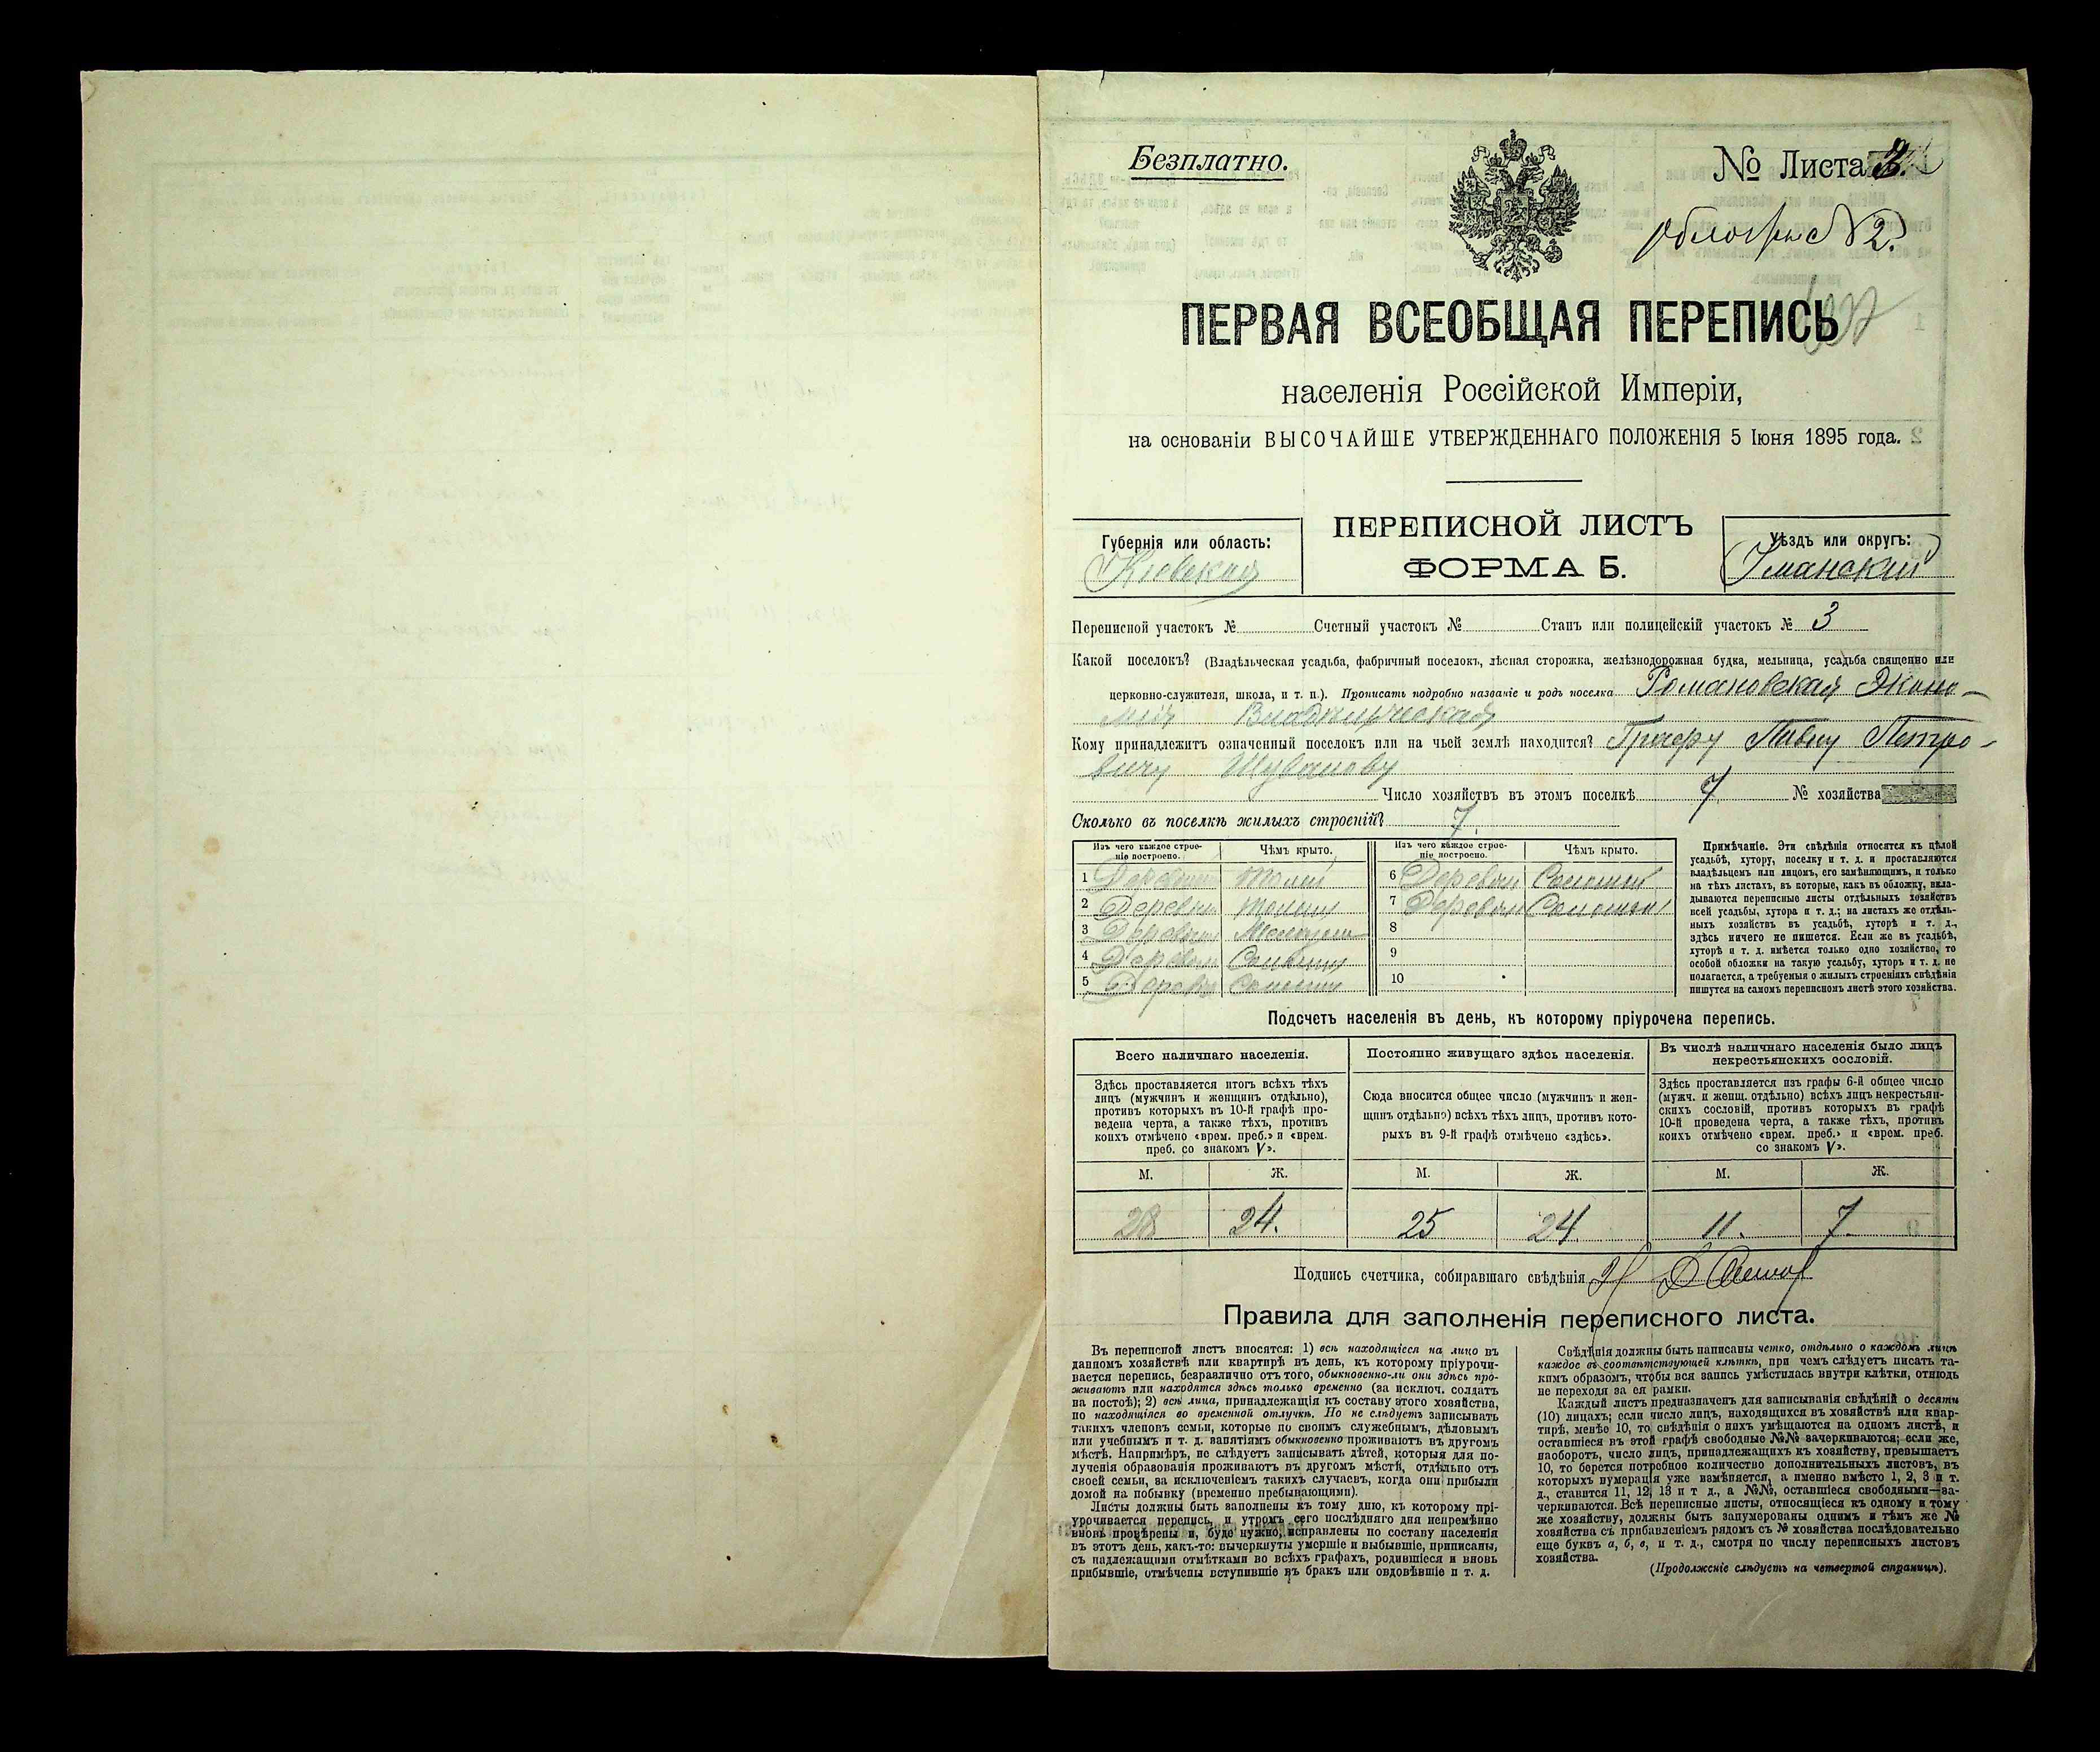 Безплатно.
№ Листа 2.
ПЕРВАЯ ВСЕОБЩАЯ ПЕРЕПИСЬ
населенія Россійской Имперіи,
на основаніи ВЫСОЧАЙШЕ УТВЕРЖДЕННАГО ПОЛОЖЕНІЯ 5 Іюня 1895 года.
ПЕРЕПИСНОЙ ЛИСТЪ
ФОРМА Б.
Губернія или область:
Кіевская
Уѣздъ или округъ:
Уманскій
Переписной участокъ № Счетный участокъ № Станъ или полицейскій участокъ № 3
Какой поселокъ? (Владѣльческая усадьба, фабричный поселокъ, лѣсная сторожка, желѣзнодорожная будка, мельница, усадьба священно или
церковно-служителя, школа, и т. п.). Прописать подробно названіе и родъ поселка Романовская Эконо-
мія Владельческая
Кому принадлежитъ означенный поселокъ или на чьей землѣ находится? Графу Павлу Петро-
вичу Шувалову
Число хозяйствъ въ этомъ поселкѣ 7 № хозяйства
Сколько въ поселкѣ жилыхъ строеній? 7.
Изъ чего каждое строе-
ніе построено.
Чѣмъ крыто.
Изъ чего каждое строе-
ніе построено.
Чѣмъ крыто.
1
2
3
4
5
6 Деревян Соломой
7 Деревян
8
9
10
Примѣчаніе. Эти свѣдѣнія относятся къ цѣлой
усадьбѣ, хутору, поселку и т. д. и проставляются
владѣльцемъ или лицомъ, его замѣняющимъ, и только
на тѣхъ листахъ, въ которые, какъ въ обложку, вкла-
дываются переписные листы отдѣльныхъ хозяйствъ
всей усадьбы, хутора и т. д.; на листахъ же отдѣль-
ныхъ хозяйствъ въ усадьбѣ, хуторѣ и т. д.,
здѣсь ничего не пишется. Если же въ усадьбѣ,
хуторѣ и т. д. имѣется только одно хозяйство, то
особой обложки на такую усадьбу, хуторъ и т. д. не
полагается, а требуемыя о жилыхъ строеніяхъ свѣдѣнія
пишутся на самомъ переписномъ листѣ этого хозяйства.
Подсчетъ населенія въ день, къ которому пріурочена перепись.
Всего наличнаго населенія.
Здѣсь проставляется итогъ всѣхъ тѣхъ
лицъ (мужчинъ и женщинъ отдѣльно),
противъ которыхъ въ 10-й графѣ про-
ведена черта, а также тѣхъ, противъ
коихъ отмѣчено «врем. преб.» и «врем.
преб. со знакомъ V».
Постоянно живущаго здѣсь населенія.
Сюда вносится общее число (мужчинъ и жен-
щинъ отдѣльно) всѣхъ тѣхъ лицъ, противъ кото-
рыхъ въ 9-й графѣ отмѣчено «здѣсь».
Въ числѣ наличнаго населенія было лицъ
некрестьянскихъ сословій.
Здѣсь проставляется изъ графы 6-й общее число
(мужч. и женщ. отдѣльно) всѣхъ лицъ некрестьян-
скихъ сословій, противъ которыхъ въ графѣ
10-й проведена черта, а также тѣхъ, противъ
коихъ отмѣчено «врем. преб.» и «врем. преб.
со знакомъ V».
М. Ж. М. Ж. М. Ж.
28 24. 25 24 11. 7.
Подпись счетчика, собиравшаго свѣдѣнія
Правила для заполненія переписного листа.
Въ переписной листъ вносятся: 1) всѣ находящіеся на лицо въ
данномъ хозяйствѣ или квартирѣ въ день, къ которому пріурочи-
вается перепись, безразлично отъ того, обыкновенно-ли они здѣсь про-
живаютъ или находятся здѣсь только временно (за исключ. солдатъ
на постоѣ); 2) всѣ лица, принадлежащія къ составу этого хозяйства,
но находящіяся во временной отлучкѣ. Но не слѣдуетъ записывать
такихъ членовъ семьи, которые по своимъ служебнымъ, дѣловымъ
или учебнымъ и т. д. занятіямъ обыкновенно проживаютъ въ другомъ
мѣстѣ. Напримѣръ, не слѣдуетъ записывать дѣтей, которыя для по-
лученія образованія проживаютъ въ другомъ мѣстѣ, отдѣльно отъ
своей семьи, за исключеніемъ такихъ случаевъ, когда они прибыли
домой на побывку (временно пребывающими).
Листы должны быть заполнены къ тому дню, къ которому прі-
урочивается перепись, и утромъ сего послѣдняго дня непремѣнно
вновь провѣрены и, буде нужно, исправлены по составу населенія
въ этотъ день, какъ-то: вычеркнуты умершіе и выбывшіе, приписаны,
съ надлежащими отмѣтками во всѣхъ графахъ, родившіеся и вновь
прибывшіе, отмѣчены вступившіе въ бракъ или овдовѣвшіе и т. д.
Свѣдѣнія должны быть написаны четко, отдѣльно о каждомъ лицѣ
каждое въ соотвѣтствующей клѣткѣ, при чемъ слѣдуетъ писать та-
кимъ образомъ, чтобы вся запись умѣстилась внутри клѣтки, отнюдь
не переходя за ея рамки.
Каждый листъ предназначенъ для записыванія свѣдѣній о десяти
(10) лицахъ; если число лицъ, находящихся въ хозяйствѣ или квар-
тирѣ, менѣе 10, то свѣдѣнія о нихъ умѣщаются на одномъ листѣ, и
оставшіеся въ этой графѣ свободные №№ зачеркиваются; если же,
наоборотъ, число лицъ, принадлежащихъ къ хозяйству, превышаетъ
10, то берется потребное количество дополнительныхъ листовъ, въ
которыхъ нумерація уже измѣняется, а именно вмѣсто 1, 2, 3 и т.
д., ставится 11, 12, 13 и т д., а №№, оставшіеся свободными—за-
черкиваются. Всѣ переписные листы, относящіеся къ одному и тому
же хозяйству, должны быть занумерованы однимъ и тѣмъ же №
хозяйства съ прибавленіемъ рядомъ съ № хозяйства послѣдовательно
еще буквъ а, б, в, и т. д., смотря по числу переписныхъ листовъ
хозяйства.
(Продолженіе слѣдуетъ на четвертой страницѣ).